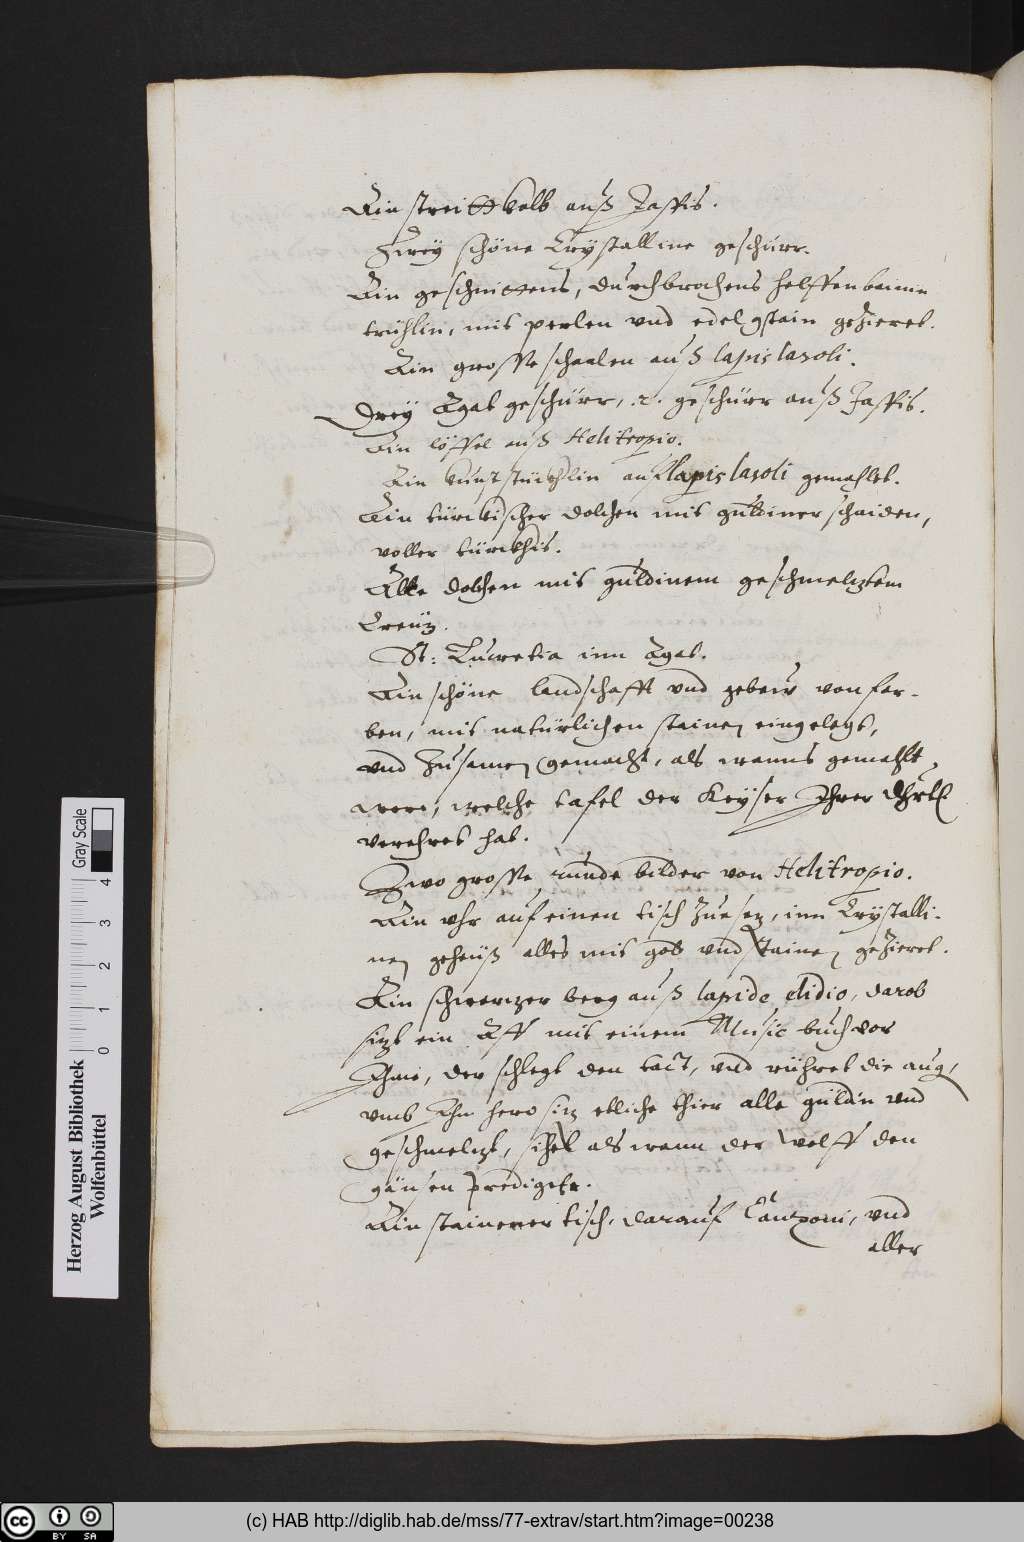 Ein streittkolb auß Jaspis.
Zwey schöne Crystalline geschürr.
Ein geschnittens, durchbrochens helffenbainin
trühlin, mit perlen vnd edelgstain gezieret.
Ein grosse schaalen auß lapis lasoli.
Drey Agat geschürr, .2. geschürr auß Jaspis.
Ein löffel auß Helitropio.
Ein kunststückhlin auf lapis lasoli gemahlet.
Ein türckischer dolchen mit guldiner schaiden,
voller türckhis.
Alte dolchen mit guldinem geschmeltztem
Creütz.
St: Lucretia inn Agat.
Ein schöne landschafft vnd gebew von far-
ben, mit natürlichen stainen eingelegt,
vnd zusamen gemacht, als wanns gemahlt
were, welche tafel der Keyser Ihrer Dhrtl
verehret hat.
Zwo grosse runde bilder von Helitropio.
Ein vhr auf einen tisch zuesetz, inn Crystalli-
nen geheüß alles mit golt vnd stainen gezieret.
Ein schwartzer berg auß lapide elidio, darob
sitzt ein Aff mit einem Music buch vor
Ihme, der schlegt den tact, vnd rühret die aug,
vmb Ihn hero sitz etliche thier alle guldin vnd
geschmeltzt, sihet als wann der wolff den
gänsen predigete.
Ein stainerer tisch, darauf Canzoni, vnd
aller
Gray Scale
0 1 2 3 4
Herzog August Bibliothek
Wolfenbüttel
cc BY SA
(c) HAB http://diglib.hab.de/mss/77-extrav/start.htm?image=00238